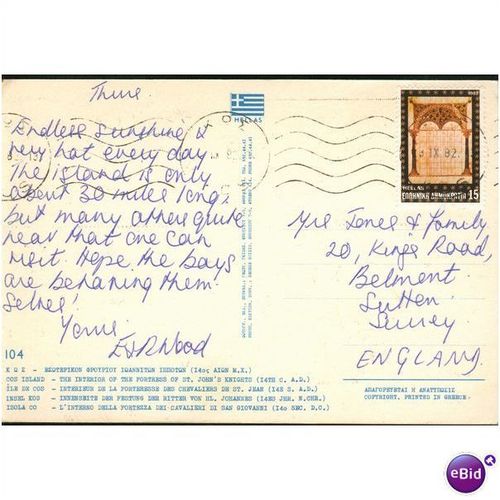 Thurs.
Endless sunshine &
very hot every day.
The island is only
about 30 miles long,
but many others quite
near that one can
visit. Hope the boys
are behaving them-
selves!
Yours
104
ΚΩΣ - ΕΣΩΤΕΡΙΚΟΝ ΦΡΟΥΡΙΟΥ ΙΩΑΝΝΙΤΩΝ ΙΠΠΟΤΩΝ (14ος ΑΙΩΝ Μ.Χ.)
COS ISLAND - THE INTERIOR OF THE FORTRESS OF ST. JOHN'S KNIGHTS (14TH C. A.D.)
ÎLE DE COS - INTERIEUR DE LA FORTERESSE DES CHEVALIERS DE ST. JEAN (14E S. A.D.)
INSEL KOS - INNENSEITE DER FESTUNG DER RITTER VON HL. JOHANNES (14ES JHR. N.CHR.)
ISOLA CO - L'INTERNO DELLA FORTEZZA DEI CAVALIERI DI SAN GIOVANNI (14o SEC. D.C.)
HELLAS
IX 82
HELLAS
ΕΛΛΗΝΙΚΗ ΔΗΜΟΚΡΑΤΙΑ 15
Mrs Jones & Family
20, Kings Road,
Belmont.
Sutton
Surrey
ENGLAND.
ΑΠΑΓΟΡΕΥΕΤΑΙ Η ΑΝΑΤΥΠΩΣΙΣ
COPYRIGHT. PRINTED IN GREECE
eBid